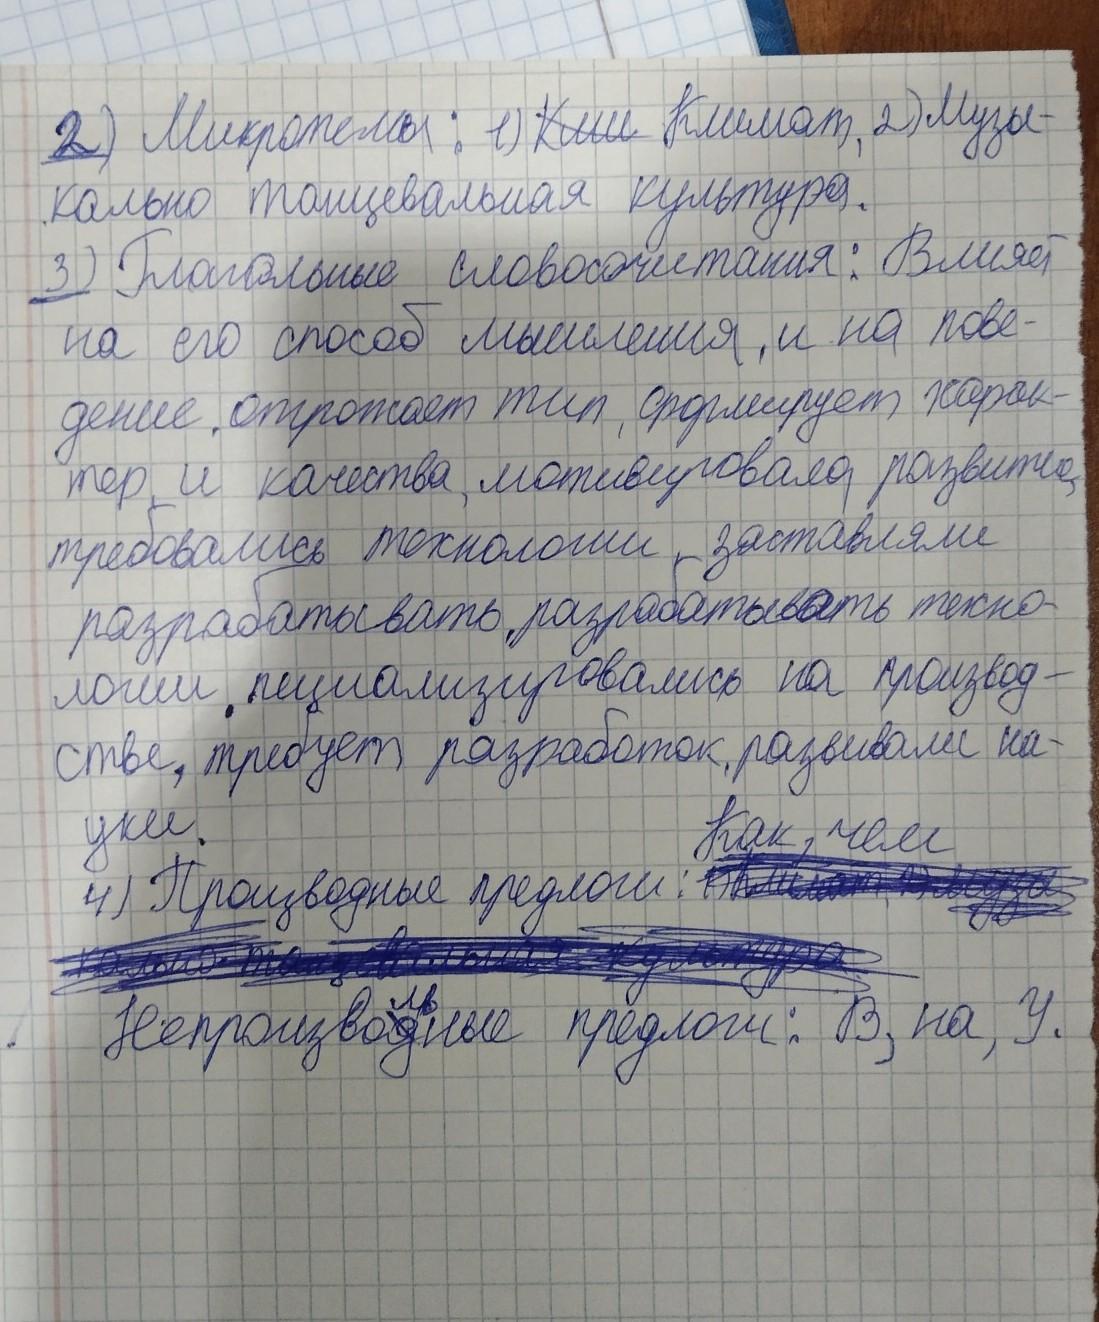 2) Микротемы: 1) Кли Климат, 2) Музы-
кально танцевальная культура.
3) Глагольные словосочетания: Влияет
на его способ мышления, и на пове-
дение, отрожает тип, формирует харак-
тер, и качества, мотивировала развитие,
требовались технологии, заставляли
разрабатывать, разрабатывать техно-
логии, пециализировались на производ-
стве, требует разработок, развивали на-
уки.
Как, чем
4) Производные предлоги:
кально танцевальная культура
Непроизводные предлоги: В, на, У.